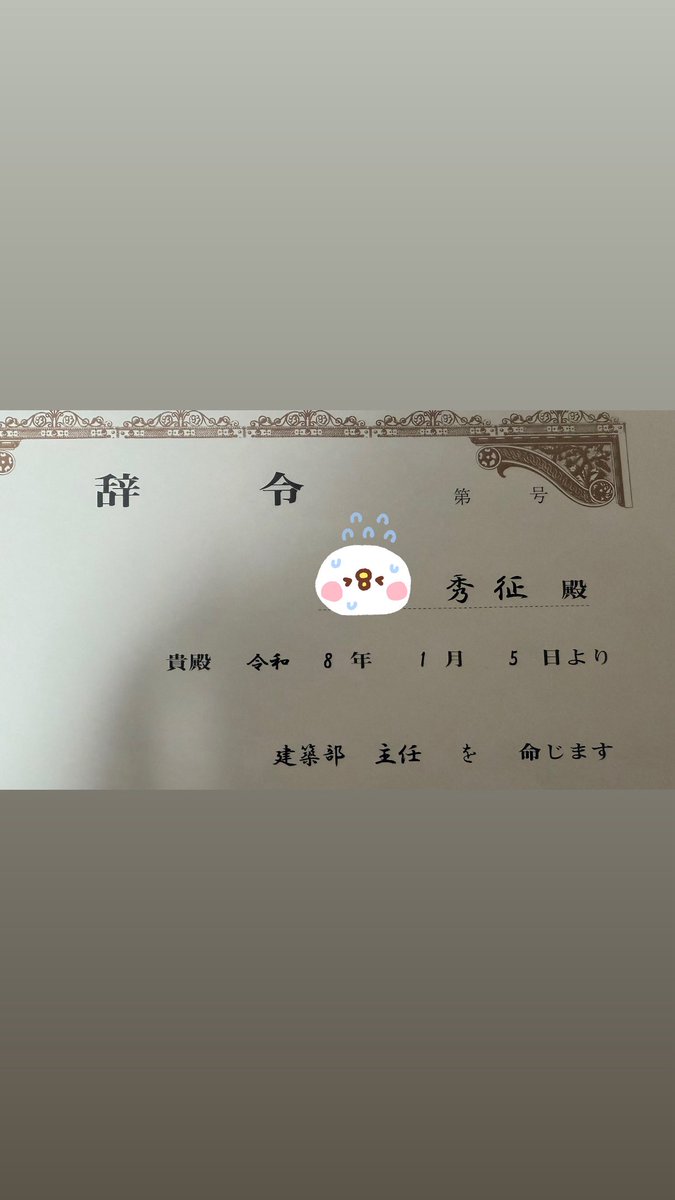 辞令 第 号
秀征 殿
貴殿 令和 8 年 1 月 5 日より
建築部 主任 を 命じます